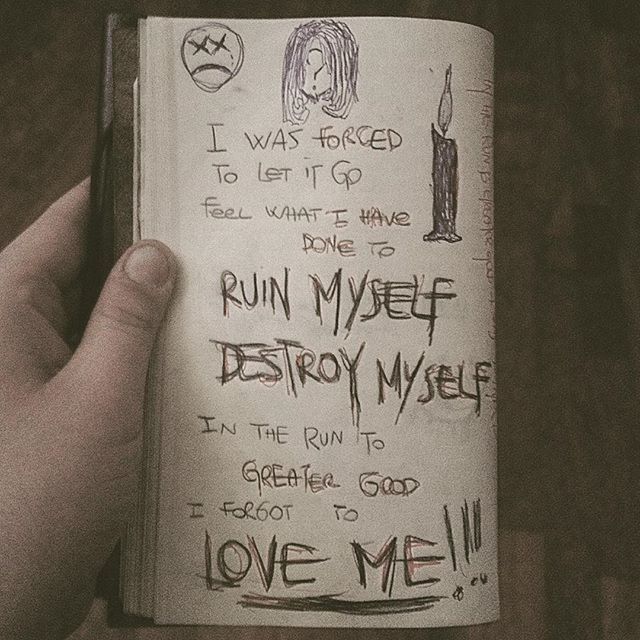 I WAS FORCED
TO LET IT GO
FEEL WHAT I HAVE
DONE TO
RUIN MYSELF
DESTROY MYSELF
IN THE RUN TO
GREATER GOOD
I FORGOT TO
LOVE ME!!!